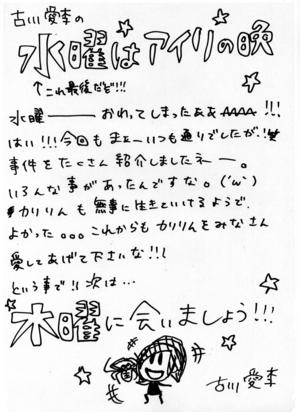 古川 愛李の
水曜はアイリの晩
↑これ最後だぞ!!!
水曜――― おわってしまったぁぁAAAA!!!
はい!!!今回もまぁーいつも通りでしたが!笑
事件をたくさん紹介しましたネー。
いろんな事があったんですな。('ω')
カリりんも無事に生きといけるようで、
よかった。。。これからもカリりんをみなさん
愛してあげて下さいな!!!
という事で!!次は…
木曜に会いましょう!!!
古川 愛李